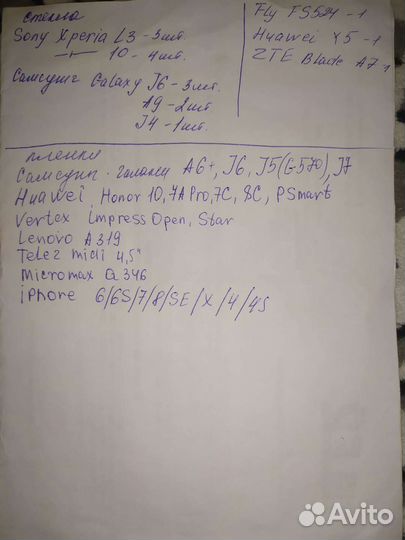 стекла
Sony Xperia L3 - 3шт.
—"— 10 - 4шт.
Самсунг Galaxy J6 - 3шт.
A9 - 2шт
J4 - 1шт.
Fly FS524 - 1
Huawei Y5 - 1
ZTE Blade A7 1
пленки
Самсунг галакси A6+, J6, J5(G570), J7
Huawei Honor 10, 7A Pro, 7C, 8C, PSmart
Vertex Impress Open, Star
Lenovo A319
Tele2 midi 4,5"
Micromax Q346
iPhone 6/6S/7/8/SE/X/4/4S
Avito